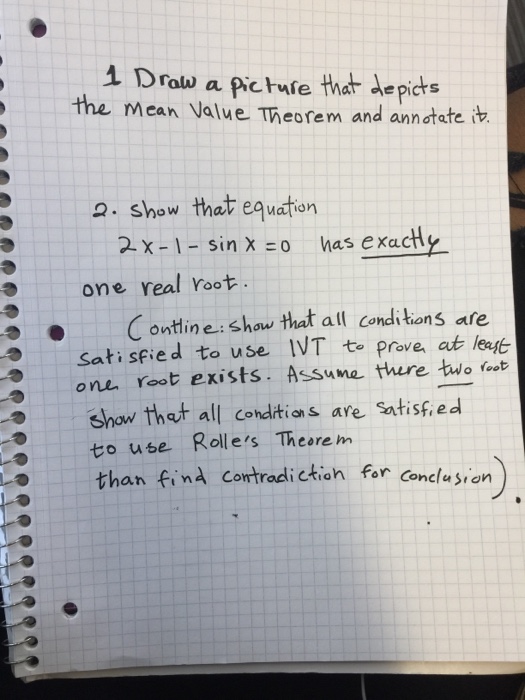 1 Draw a picture that depicts
the Mean Value Theorem and annotate it.
2. show that equation
2x-1- sin x =0 has exactly
one real root.
(outline: show that all conditions are
satisfied to use IVT to prove at least
one root exists. Assume there two root
show that all conditions are satisfied
to use Rolle's Theorem
than find contradiction for conclusion).